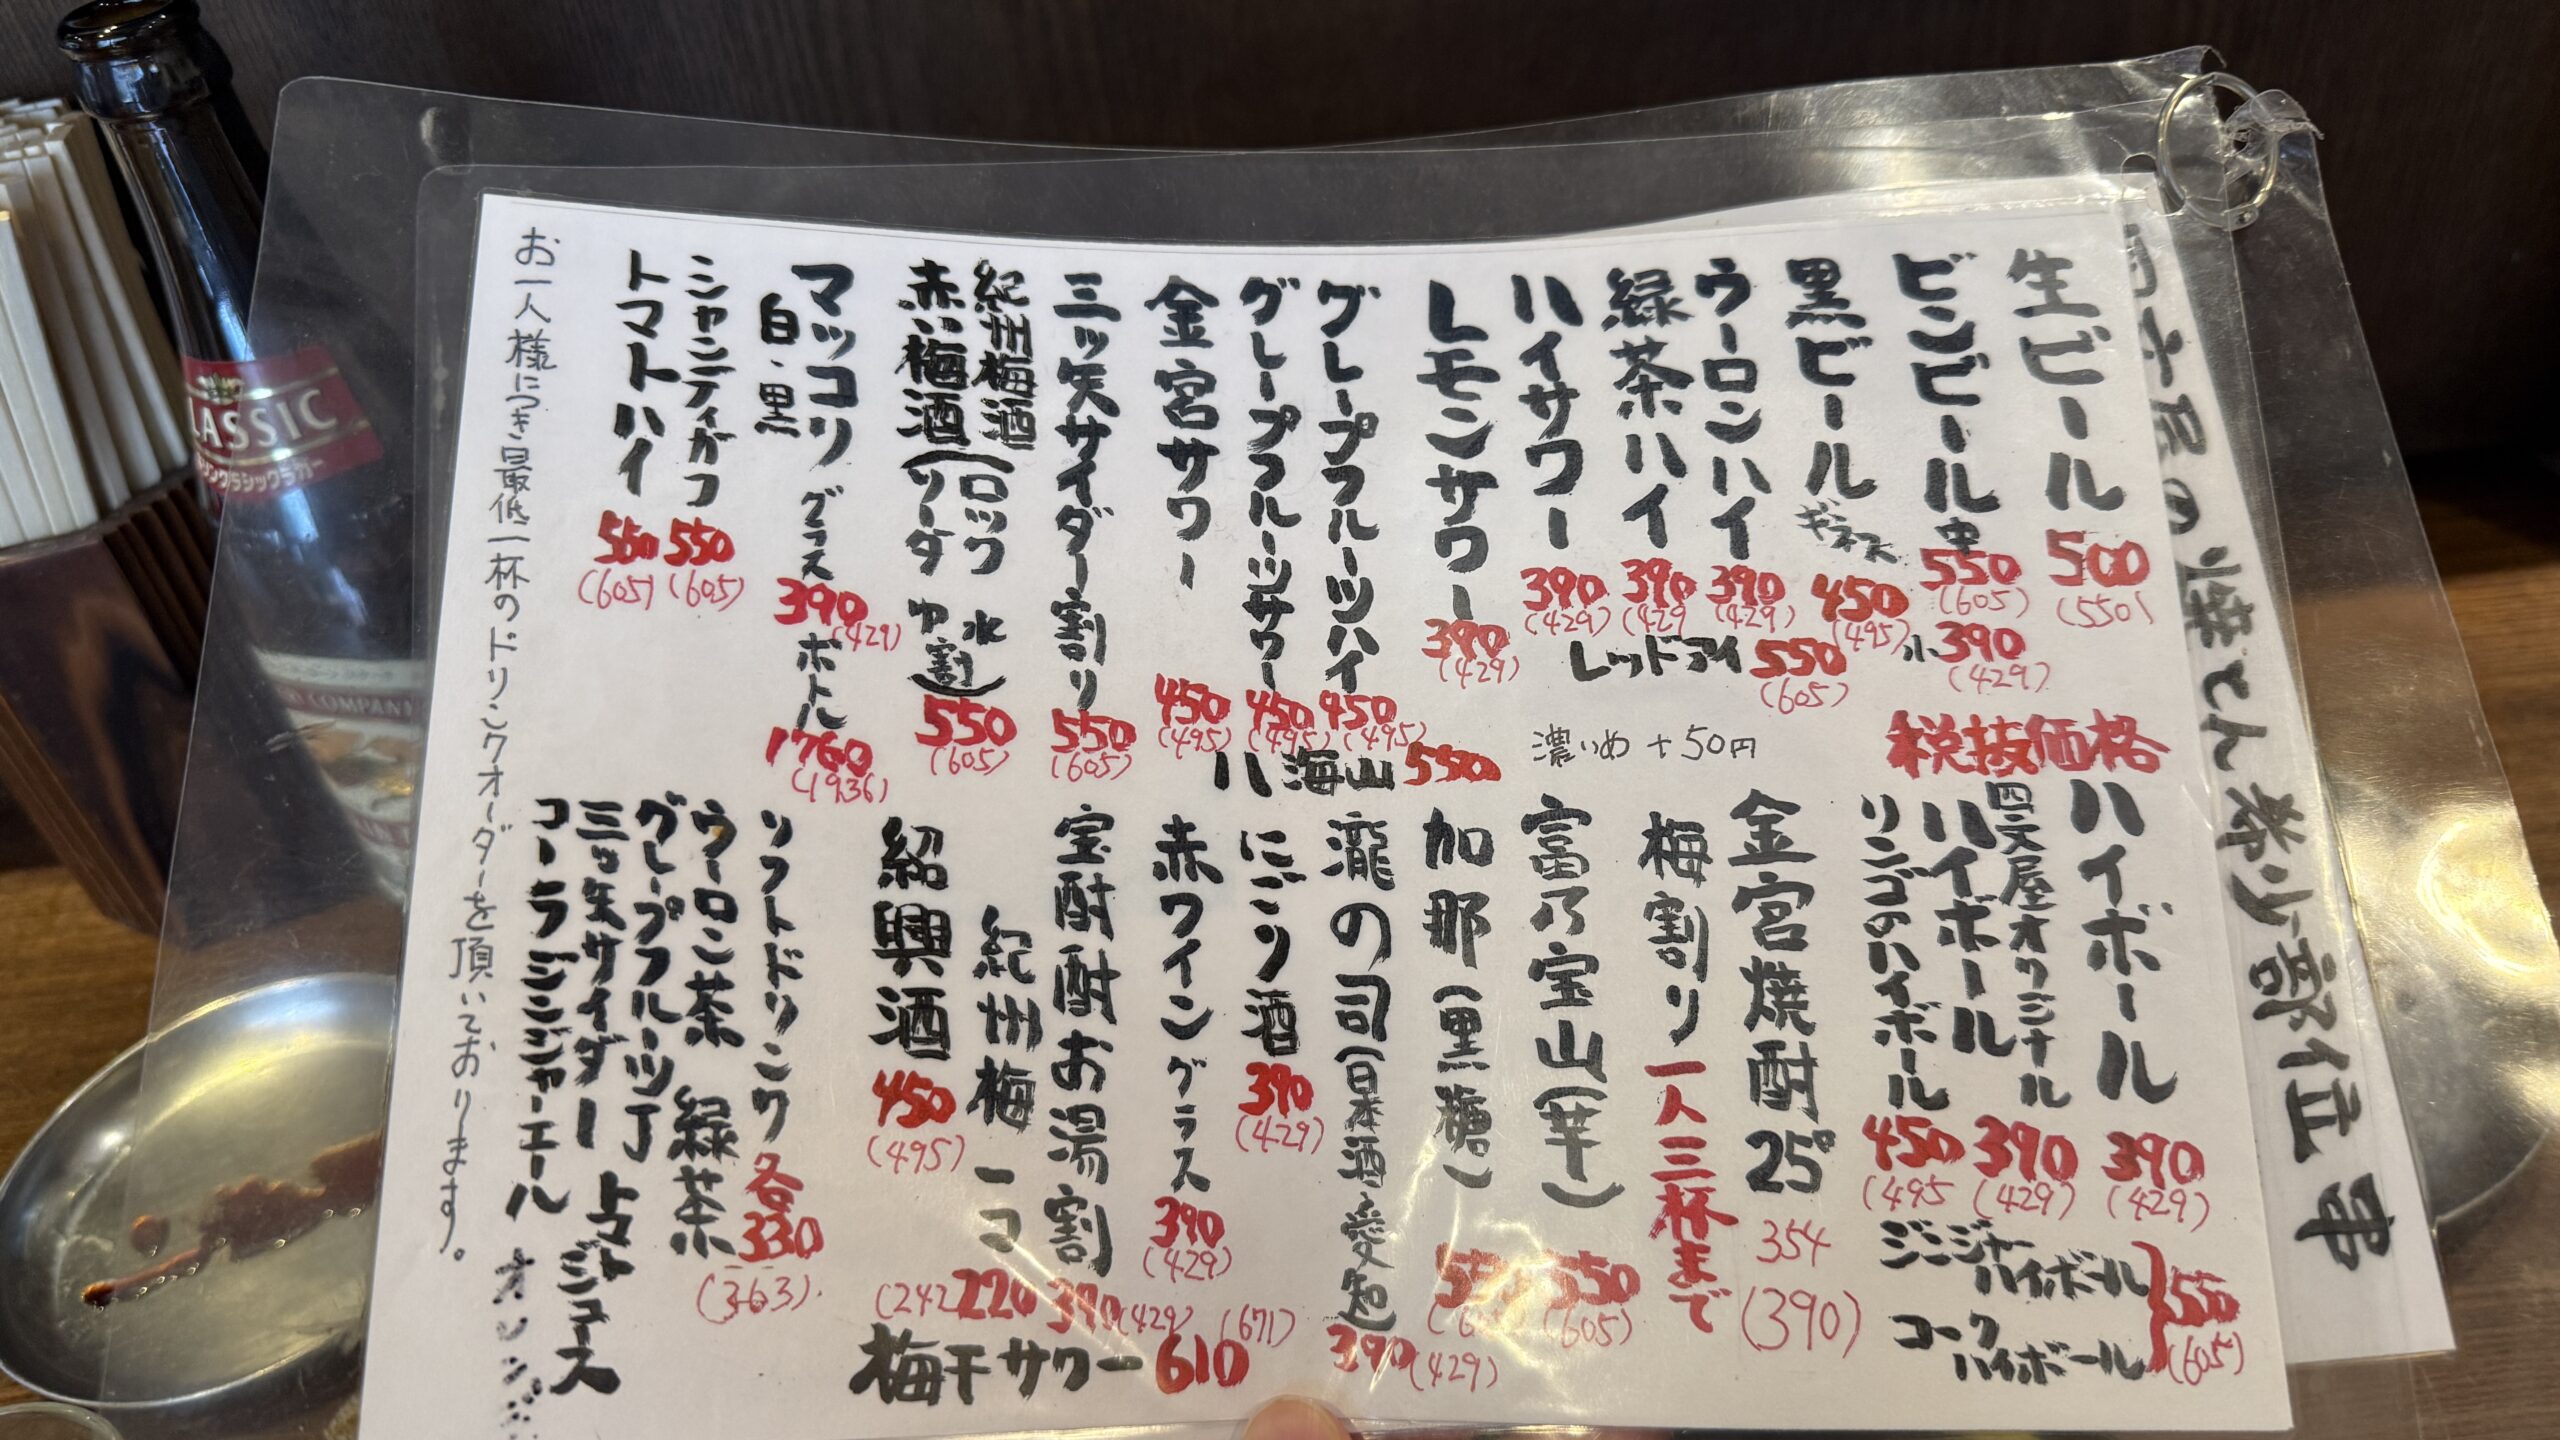 生ビール 500 (550)
ビンビール 中 550 (605) 小 390 (429)
黒ビール ギネス 450 (495)
ウーロンハイ 390 (429)
緑茶ハイ 390 (429
レッドアイ 550 (605)
ハイサワー 390 (429)
レモンサワー 390 (429)
グレープフルーツハイ 450 (495)
グレープフルーツサワー 450 (495)
金宮サワー 450 (495)
三ッ矢サイダー割り 550 (605)
紀州梅酒 (ロック 水
赤い梅酒 (ソーダ 割) 550 (605)
マッコリ グラス 390 (429) ボトル 1760 (1936)
白・黒
シャンディガフ 550 (605)
トマトハイ 550 (605)
税抜価格
濃いめ +50円
八海山 550
ハイボール 390 (429)
四文屋オリジナル
ハイボール 390 (429)
リンゴのハイボール 450 (495
ジンジャーハイボール
コークハイボール 550 (605)
金宮焼酎 25° 354 (390)
梅割り 一人三杯まで
富乃宝山(芋) 550 (605)
加那(黒糖) 550
瀧の司(日本酒 愛知) 390 (429)
にごり酒 390 (429)
赤ワイン グラス 390 (429)
宝酎酎お湯割 390 (429)
紀州梅 一コ 220 (242
梅干サワー 610 (671)
紹興酒 450 (495)
ソフトドリンク 各330 (363)
ウーロン茶 緑茶
グレープフルーツJ
三ッ矢サイダー トマトジュース
コーラ ジンジャーエール オレンジ
お一人様につき最低一杯のドリンクオーダーを頂いております。
の焼とん希少部位串
CLASSIC
キリンクラシックラガー
COMPANY